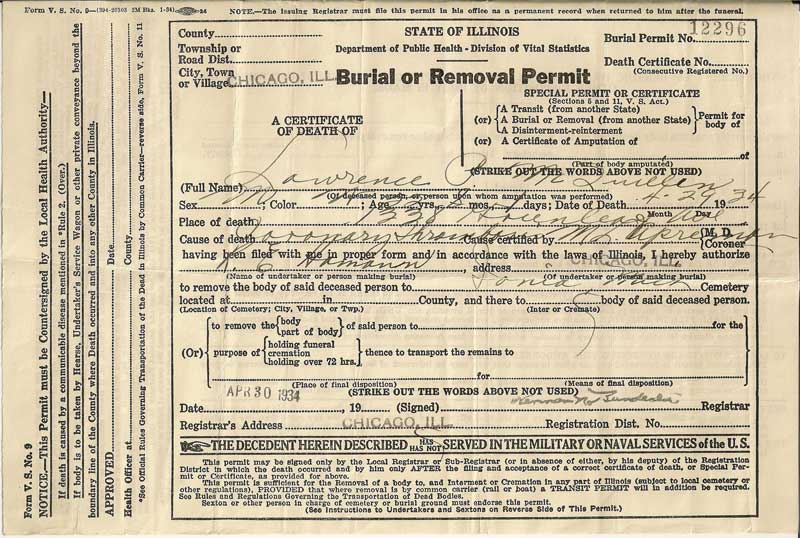 Form V. S. No. 9—(394-20303 2M Bks. 1-34) 34 NOTE.—The issuing Registrar must file this permit in his office as a permanent record when returned to him after the funeral.
County
STATE OF ILLINOIS
Burial Permit No. 12296
Township or
Road Dist.
Department of Public Health - Division of Vital Statistics
Death Certificate No.
(Consecutive Registered No.)
City, Town
or Village CHICAGO, ILL.
Burial or Removal Permit
A CERTIFICATE
OF DEATH OF
SPECIAL PERMIT OR CERTIFICATE
(Sections 5 and 11, V. S. Act.)
A Transit (from another State)
(or) A Burial or Removal (from another State) Permit for
A Disinterment-reinterment body of
(or) A Certificate of Amputation of
of
(Part of body amputated)
(STRIKE OUT THE WORDS ABOVE NOT USED)
(Full Name) Lawrence
(Of deceased person, or person upon whom amputation was performed)
Sex M ; Color ; Age yrs. mos. days; Date of Death 4-29 1934
Month Day
Place of death
Cause of death Coronary Thrombosis Cause certified by M. D.
Coroner
having been filed with me in proper form and in accordance with the laws of Illinois, I hereby authorize
address CHICAGO, ILL.
(Name of undertaker or person making burial) (Of undertaker or person making burial)
to remove the body of said deceased person to Cemetery
located at in County, and there to body of said deceased person.
(Location of Cemetery; City, Village, or Twp.) (Inter or Cremate)
to remove the body of said person to for the
part of body
(Or) purpose of holding funeral
cremation thence to transport the remains to
holding over 72 hrs.
for
(Place of final disposition) (Means of final disposition)
(STRIKE OUT THE WORDS ABOVE NOT USED)
APR 30 1934
Date , 19 (Signed) Herman N. Bundesen Registrar
Registrar's Address CHICAGO, ILL. Registration Dist. No.
THE DECEDENT HEREIN DESCRIBED HAS HAS NOT SERVED IN THE MILITARY OR NAVAL SERVICES of the U. S.
This permit may be signed only by the Local Registrar or Sub-Registrar (or in absence of either, by his deputy) of the Registration
District in which the death occurred and by him only AFTER the filing and acceptance of a correct certificate of death, or Special Per-
mit or Certificate, as provided for above.
This permit is sufficient for the Removal of a body to, and Interment or Cremation in any part of Illinois (subject to local cemetery or
other regulations), PROVIDED that where removal is by common carrier (rail or boat) a TRANSIT PERMIT will in addition be required.
See Rules and Regulations Governing the Transportation of Dead Bodies.
Sexton or other person in charge of cemetery or burial ground must endorse this permit.
(See Instructions to Undertakers and Sextons on Reverse Side of This Permit.)
Form V. S. No. 9
NOTICE.—This Permit must be Countersigned by the Local Health Authority—
If death is caused by a communicable disease mentioned in *Rule 2. (Over.)
If body is to be taken by Hearse, Undertaker's Service Wagon or other private conveyance beyond the
boundary line of the County where Death occurred and into any other County in Illinois.
APPROVED Date
Health Officer at County
*See Official Rules Governing Transportation of the Dead in Illinois by Common Carrier—reverse side, Form V. S. No. 11